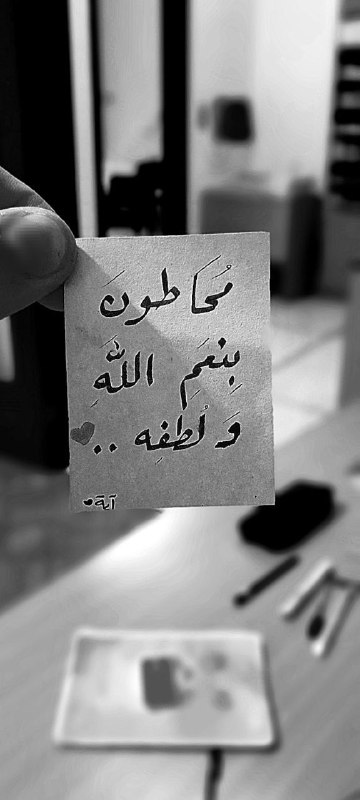 مُحَاطونَ
بِنعَمِ اللّٰهِ
وَ لُطفِه ..
آية